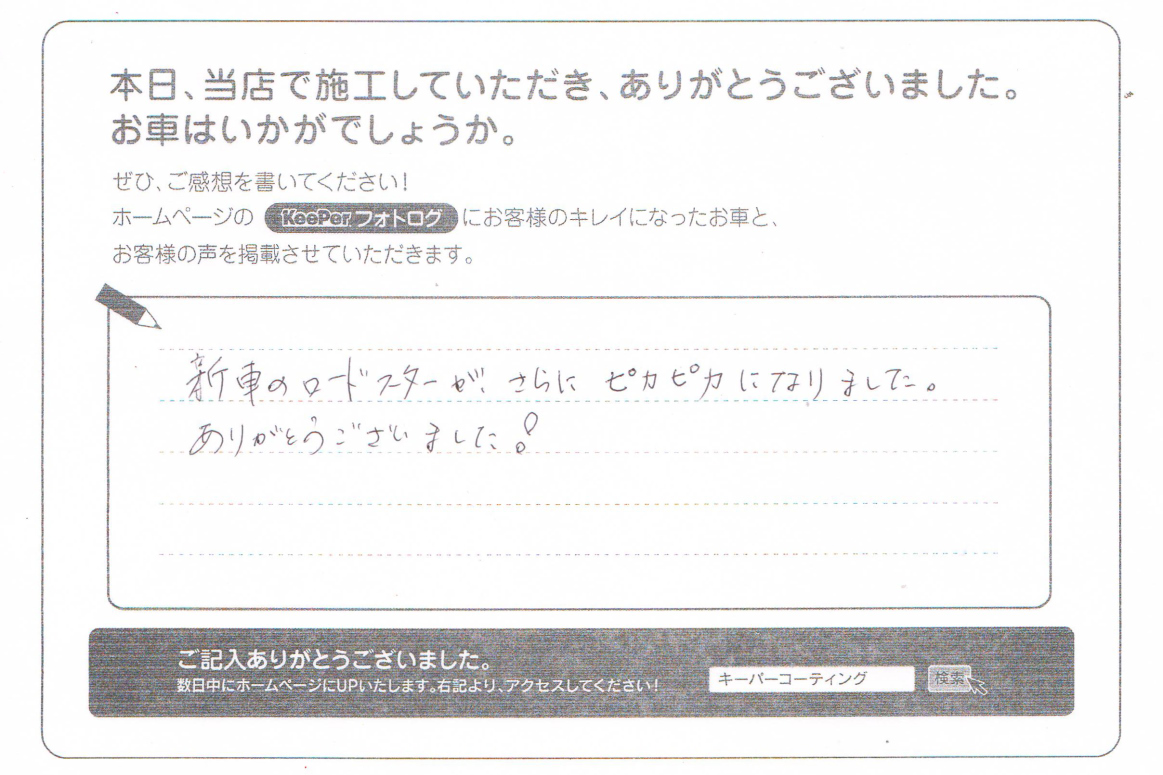 本日、当店で施工していただき、ありがとうございました。
お車はいかがでしょうか。
ぜひ、ご感想を書いてください!
ホームページの KeePer フォトログ にお客様のキレイになったお車と、
お客様の声を掲載させていただきます。
新車のロードスターが、さらに ピカピカ になりました。
ありがとうございました!
ご記入ありがとうございました。
数日中にホームページにUPいたします。右記より、アクセスしてください!
キーパーコーティング 検索